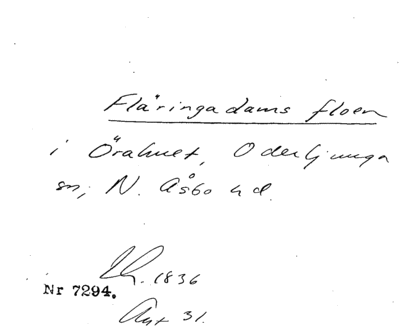 Fläringadams floen
i Örahult, Oderljunga
sn, N. Åsbo hd.
1836
Nr 7294.
31.